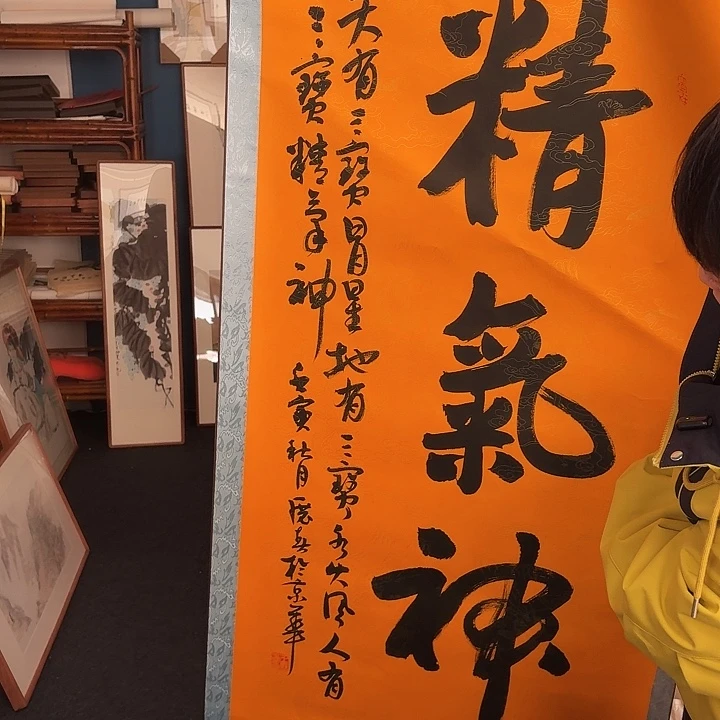 精氣神
天有三寶日月星地有三寶水火風人有
三寶精氣神 壬寅秋月 於京華